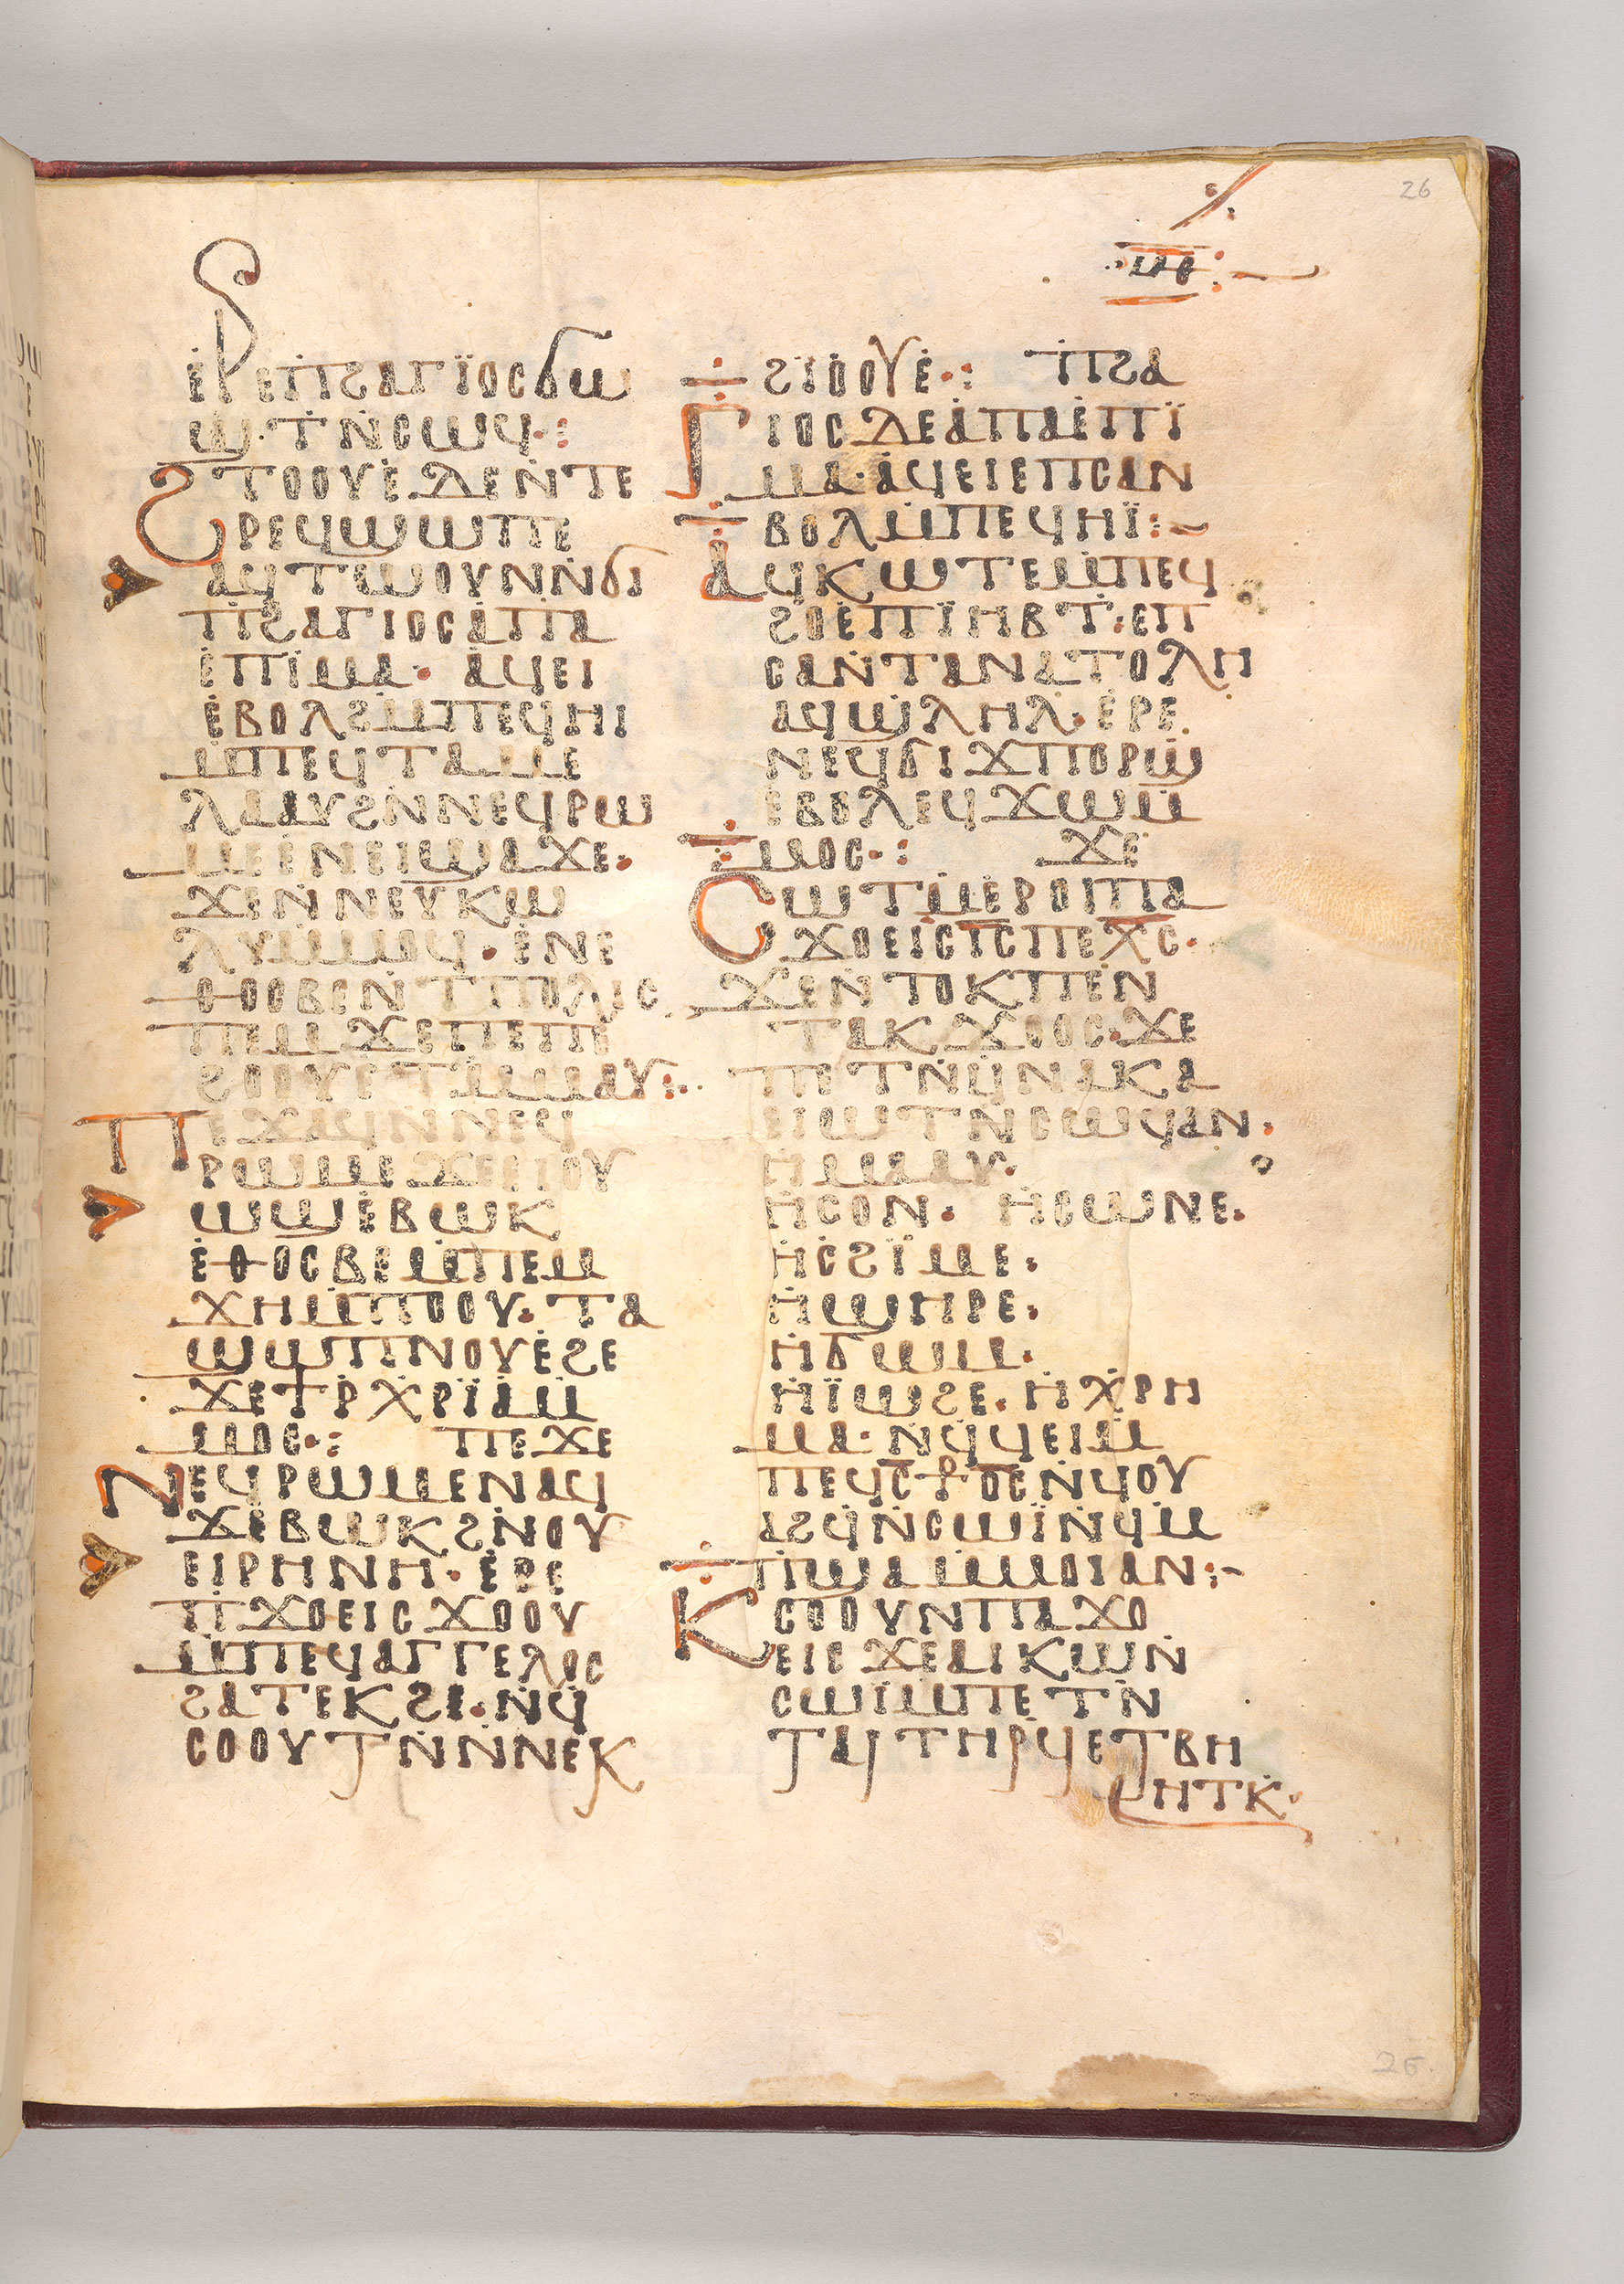 26
ⲛⲑ
ⲉⲣⲉⲡϩⲁⲅⲓⲟⲥϭⲱ
ϣⲧⲛⲥⲱϥ·:
ϩⲧⲟⲟⲩⲉⲇⲉⲛⲧⲉ
ⲣⲉϥϣⲱⲡⲉ
ⲁϥⲧⲱⲟⲩⲛⲛϭⲓ
ⲡϩⲁⲅⲓⲟⲥⲁⲡⲁ
ⲉⲡⲓⲙⲁ· ⲁϥⲉⲓ
ⲉⲃⲟⲗϩⲙⲡⲉϥⲏⲓ
ⲙⲡⲉϥⲧⲁⲙⲉ
ⲗⲁⲁⲩϩⲛⲛⲉϥⲣⲱ
ⲙⲉⲉⲛⲉⲓϣⲁϫⲉ·
ϫⲉⲛⲛⲉⲩⲕⲱ
ⲗⲩⲙⲙⲟϥ·ⲉⲛⲉ
ⲑⲟⲥⲃⲉⲛⲧⲡⲟⲗⲓⲥ
ⲡⲉⲙϫⲉⲡⲉⲡⲉ
ϩⲟⲟⲩⲉⲧⲙⲙⲁⲩ:·
ⲡⲉϫⲁϥⲛⲛⲉϥ
ⲣⲱⲙⲉϫⲉⲉⲓⲟⲩ
ⲱϣⲉⲃⲱⲕ
ⲉⲑⲟⲥⲃⲉⲙⲡⲉⲙ
ϫⲏⲙⲡⲟⲟⲩ·ⲧⲁ
ϣⲱⲡⲛⲟⲩⲉϩⲉ
ϫⲉϯⲣⲭⲣⲓⲁⲙ
ⲙⲟⲥ·: ⲡⲉϫⲉ
ⲛⲉϥⲣⲱⲙⲉⲛⲁϥ
ϫⲉⲃⲱⲕϩⲛⲟⲩ
ⲉⲓⲣⲏⲛⲏ·ⲉⲣⲉ
ⲡϫⲟⲉⲓⲥϫⲟⲟⲩ
ⲙⲡⲉϥⲁⲅⲅⲉⲗⲟⲥ
ϩⲁⲧⲉⲕϩⲉ·ⲛϥ
ⲥⲟⲟⲩⲧⲛⲛⲛⲉⲕ
ϩⲓⲟⲟⲩⲉ·: ⲡϩⲁ
ⲅⲓⲟⲥⲇⲉⲁⲡⲁⲉⲡⲓ
ⲙⲁ·ⲁϥⲉⲓⲉⲡⲥⲁⲛ
ⲃⲟⲗⲙⲡⲉϥⲏⲓ:~
ⲁϥⲕⲱⲧⲉⲙⲡⲉϥ
ϩⲟⲉⲡⲓⲏⲃⲧ:ⲉⲡ
ⲥⲁⲛⲧⲁⲛⲁⲧⲟⲗⲏ
ⲁϥϣⲗⲏⲗ·ⲉⲣⲉ
ⲛⲉϥϭⲓϫⲡⲟⲣϣ
ⲉⲃⲟⲗⲉϥϫⲱⲙ
ⲙⲟⲥ·: ϫⲉ
ⲥⲱⲧⲙⲉⲣⲟⲓⲡⲁ
ϫⲟⲉⲓⲥⲓⲥⲡⲉⲭⲥ·
ϫⲉⲛⲧⲟⲕⲡⲉⲛ
ⲧⲁⲕϫⲟⲟⲥ·ϫⲉ
ⲡⲉⲧⲛϥⲛⲁⲕⲁ
ⲉⲓⲱⲧⲛⲥⲱϥⲁⲛ·
ⲏⲙⲁⲁⲩ·
ⲏⲥⲟⲛ· ⲏⲥⲱⲛⲉ·
ⲏⲥϩⲓⲙⲉ·
ⲏϣⲏⲣⲉ·
ⲏϭⲱⲙ·
ⲏⲓⲱϩⲉ·ⲏⲭⲣⲏ
ⲙⲁ·ⲛϥϥⲉⲓⲙ
ⲡⲉϥⲥⲣⲟⲥⲛϥⲟⲩ
ⲁϩϥⲛⲥⲱⲓⲛϥⲙ
ⲡϣⲁⲙⲙⲟⲓⲁⲛ:~
ⲕⲥⲟⲟⲩⲛⲡⲁϫⲟ
ⲉⲓⲥϫⲉⲁⲓⲕⲱⲛ
ⲥⲱⲓⲙⲡⲉⲧⲛ
ⲧⲁⲓⲧⲏⲣϥⲉⲧⲃⲏ
ⲏⲧⲕ·
26.